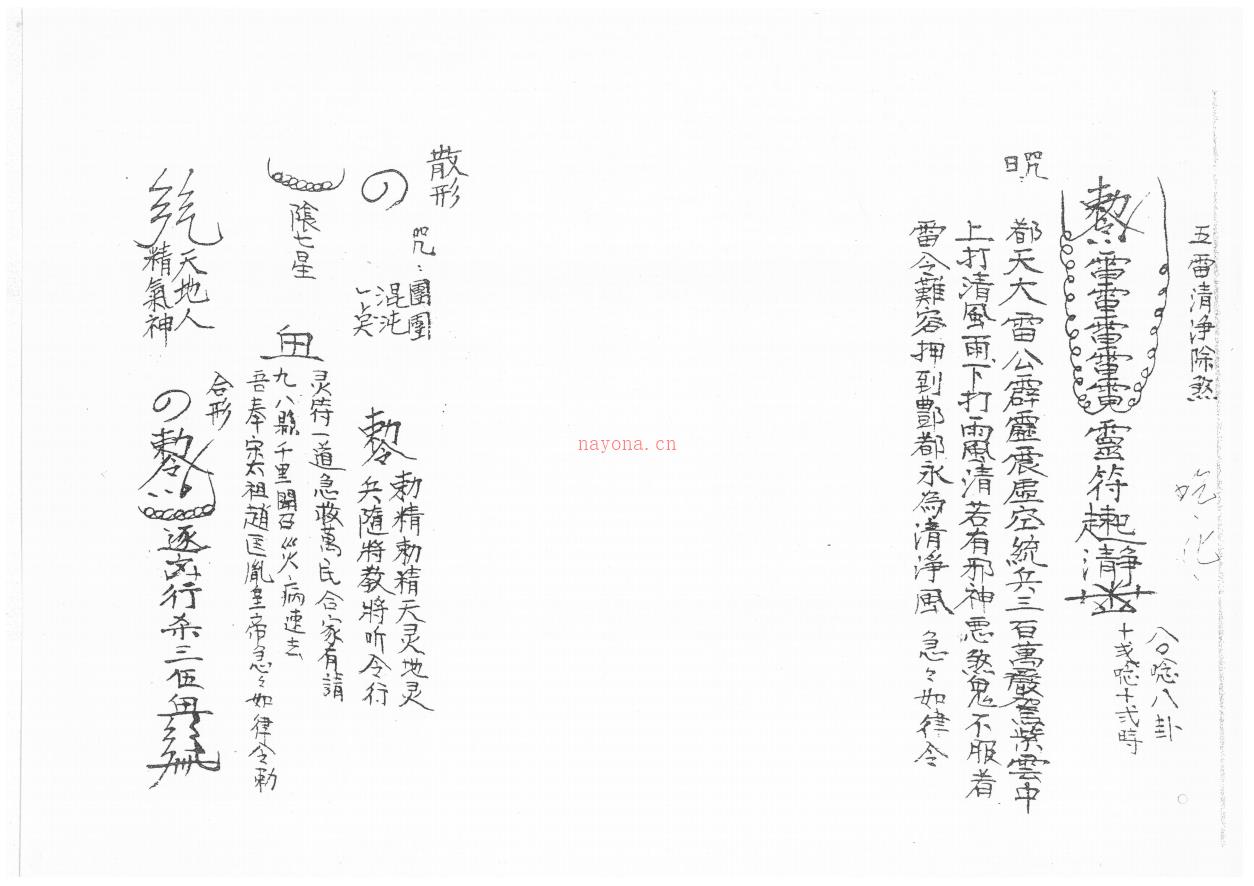 五雷清净除煞
勅令雷雷雷雷電靈符起清靜
八唸八卦
十弍唸十弍時
咒曰
都天大雷公霹靂震虛空統兵三百萬嚴駕紫雲中
上打清風雨下打雨風清若有邪神惡煞鬼不服者
雷令難容押到酆都永為清淨風 急々如律令
散形
咒:團團
混沌
陰七星
天地人
精氣神
勅令
勅精勅精天灵地灵
兵隨將教將听令行
灵符一道急救萬民合家有請
九八縣千里開召災病速去
吾奉宋太祖趙匡胤皇帝急々如律令勅
合形
勅令
逐 行杀三伍
nayona.cn